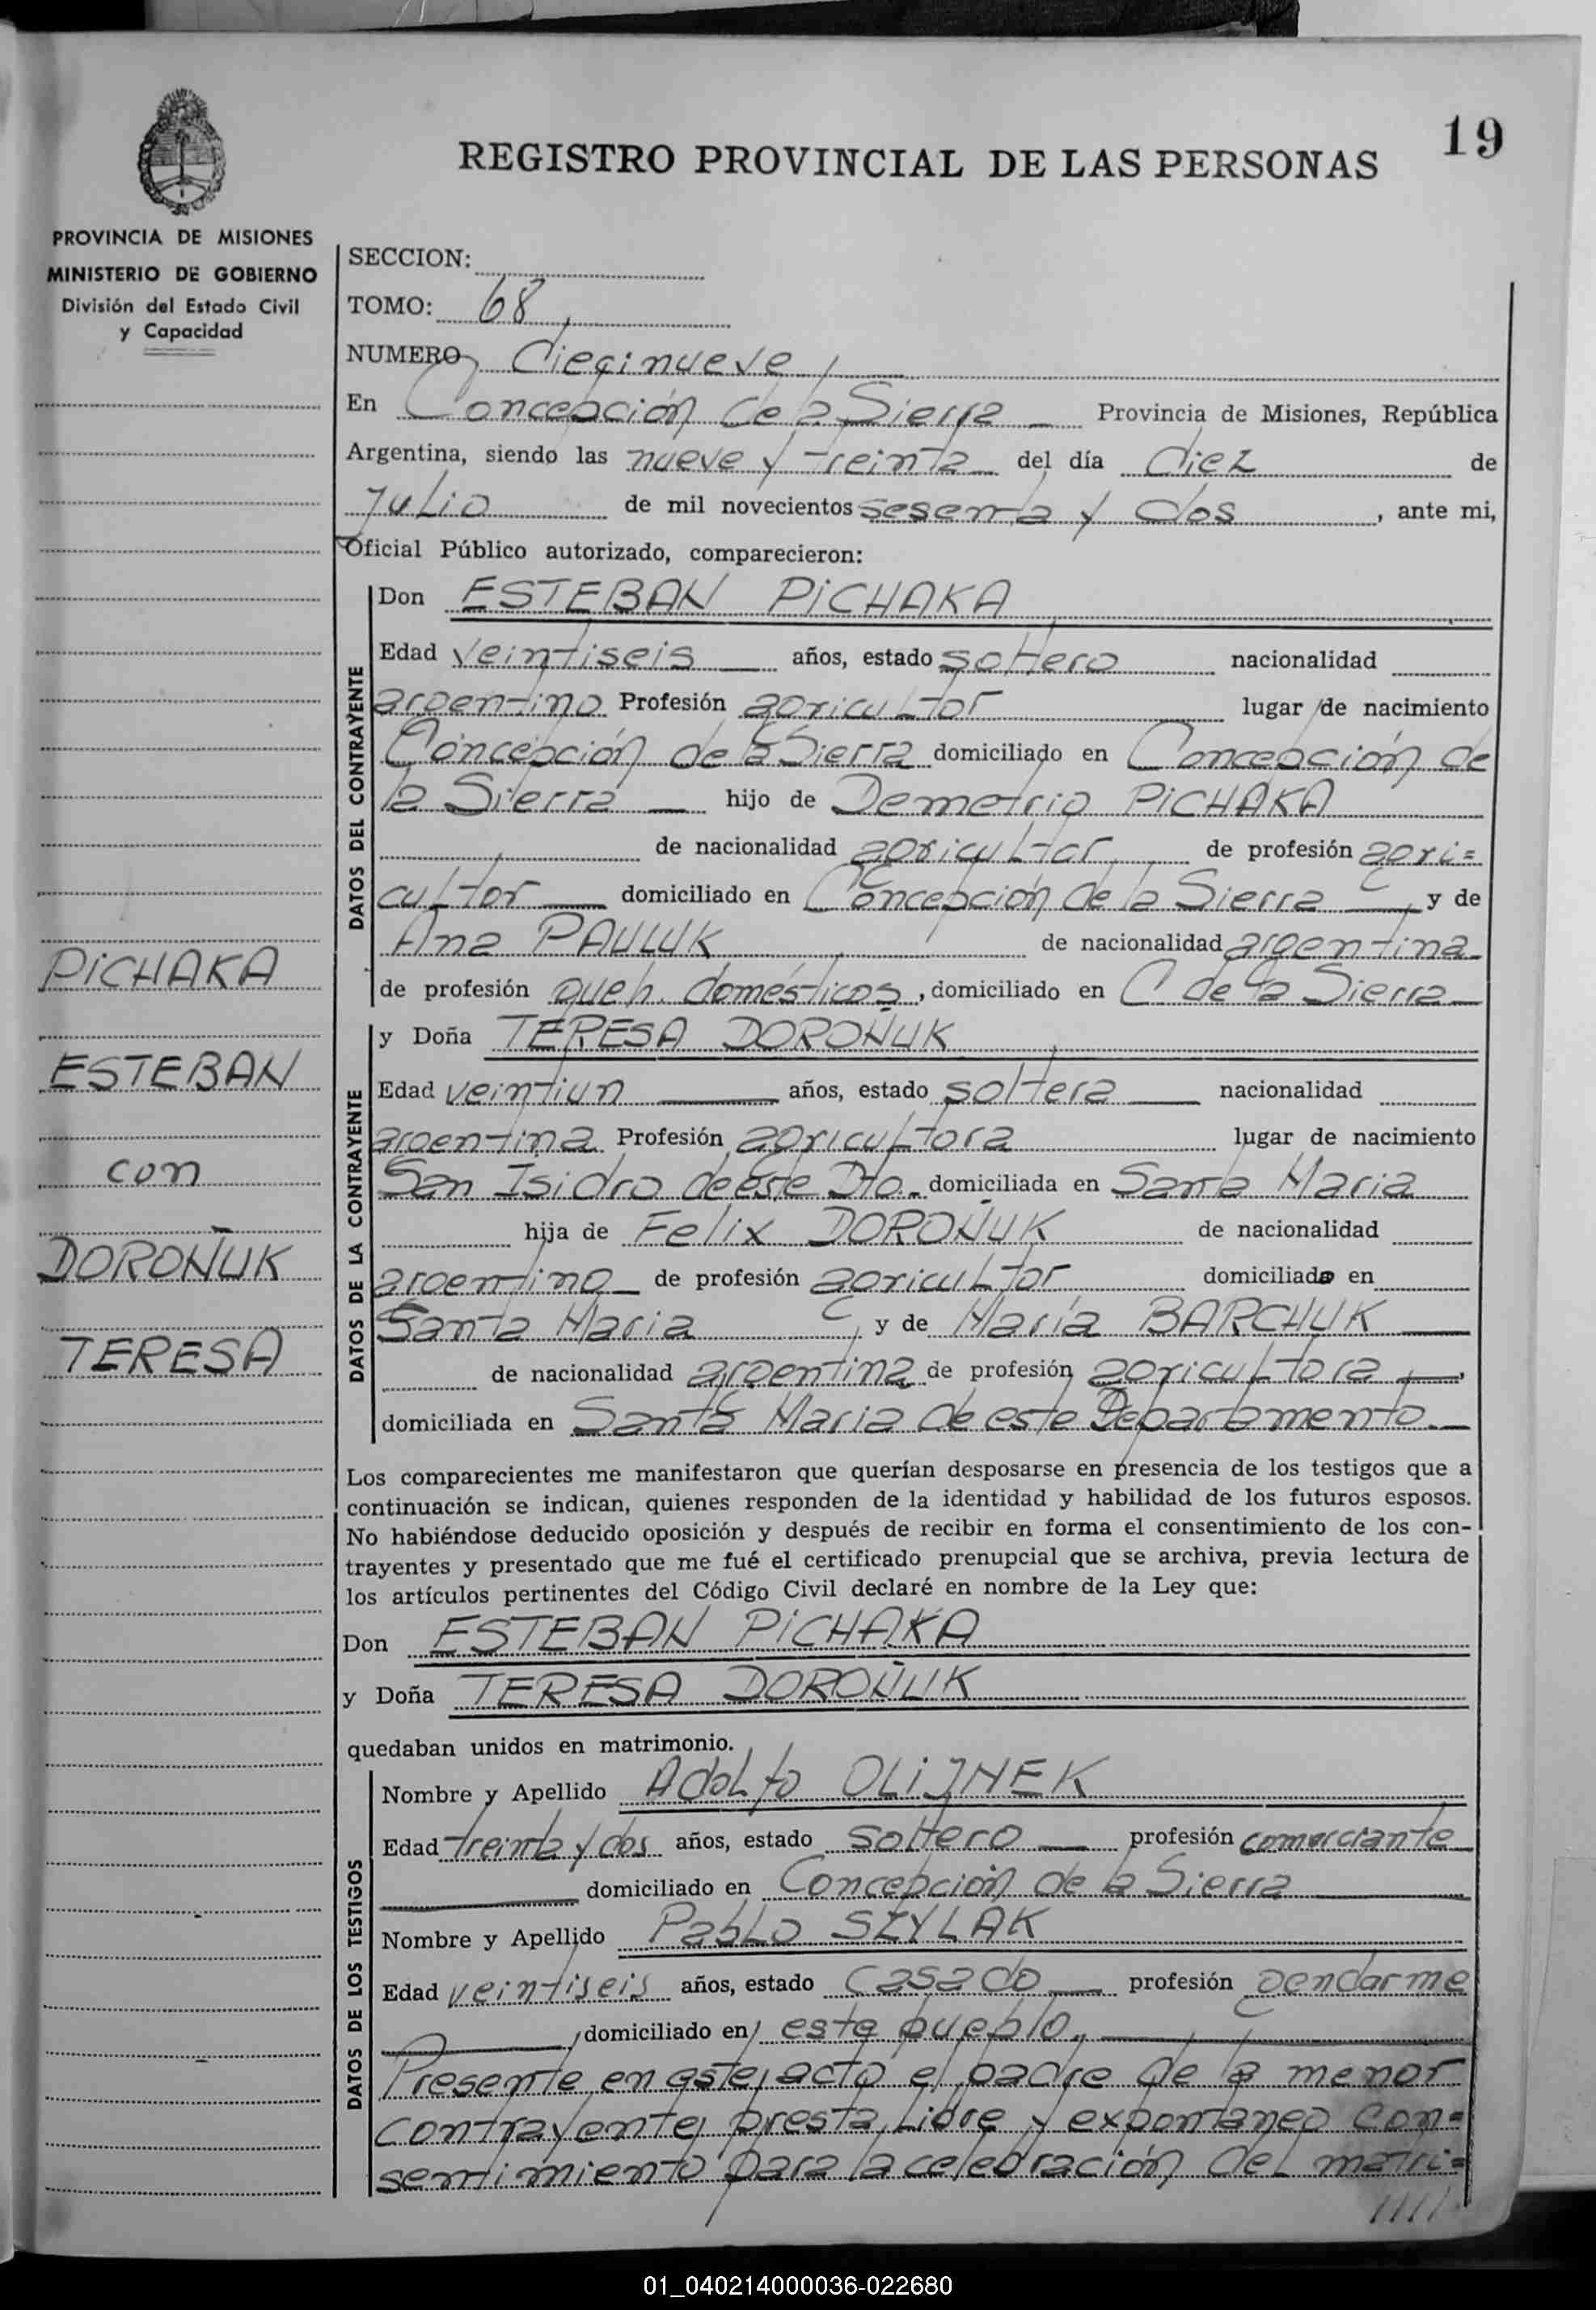 19
REGISTRO PROVINCIAL DE LAS PERSONAS
PROVINCIA DE MISIONES
MINISTERIO DE GOBIERNO
División del Estado Civil
y Capacidad
SECCION:
TOMO: 68
NUMERO Diecinueve
En Concepción de la Sierra Provincia de Misiones, República
Argentina, siendo las nueve y treinta del día diez de
Julio de mil novecientos sesenta y dos, ante mi,
Oficial Público autorizado, comparecieron:
DATOS DEL CONTRAYENTE
Don ESTEBAN PICHAKA
Edad veintiseis años, estado soltero nacionalidad
argentino Profesión agricultor lugar de nacimiento
Concepción de la Sierra domiciliado en Concepción de
la Sierra hijo de Demetrio PICHAKA
de nacionalidad agricultor de profesión agri=
cultor domiciliado en Concepción de la Sierra y de
Ana PAULUK de nacionalidad argentina
de profesión queh. domésticos, domiciliado en C. de la Sierra
DATOS DE LA CONTRAYENTE
y Doña TERESA DOROÑUK
Edad veintiun años, estado soltera nacionalidad
argentina Profesión agricultora lugar de nacimiento
San Isidro de este Dto. domiciliada en Santa Maria
hija de Felix DOROÑUK de nacionalidad
argentino de profesión agricultor domiciliado en
Santa Maria y de María BARCHUK
de nacionalidad argentina de profesión agricultora
domiciliada en Santa Maria de este Departamento.
PICHAKA
ESTEBAN
con
DOROÑUK
TERESA
Los comparecientes me manifestaron que querían desposarse en presencia de los testigos que a
continuación se indican, quienes responden de la identidad y habilidad de los futuros esposos.
No habiéndose deducido oposición y después de recibir en forma el consentimiento de los con-
trayentes y presentado que me fué el certificado prenupcial que se archiva, previa lectura de
los artículos pertinentes del Código Civil declaré en nombre de la Ley que:
Don ESTEBAN PICHAKA
y Doña TERESA DOROÑUK
quedaban unidos en matrimonio.
DATOS DE LOS TESTIGOS
Nombre y Apellido Adolfo OLIJNEK
Edad treinta y dos años, estado soltero profesión comerciante
domiciliado en Concepción de la Sierra
Nombre y Apellido Pablo SZYLAK
Edad veintiseis años, estado casado profesión gendarme
domiciliado en este pueblo.
Presente en este acto el padre de la menor
contrayente, presta libre y expontaneo con=
sentimiento para la celebración del matri=
01_040214000036-022680